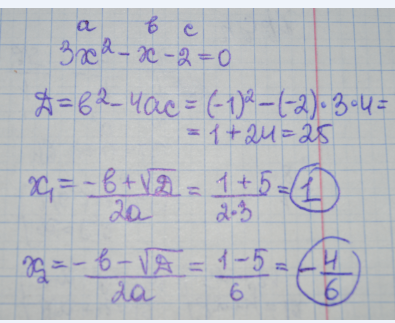 a в c
3x² - x - 2 = 0
Д = в² - 4ac = (-1)² - (-2) · 3 · 4 =
= 1 + 24 = 25
x₁ = (-в + √Д)/(2a) = (1 + 5)/(2·3) = 1
x₂ = (-в - √Д)/(2a) = (1 - 5)/6 = -4/6